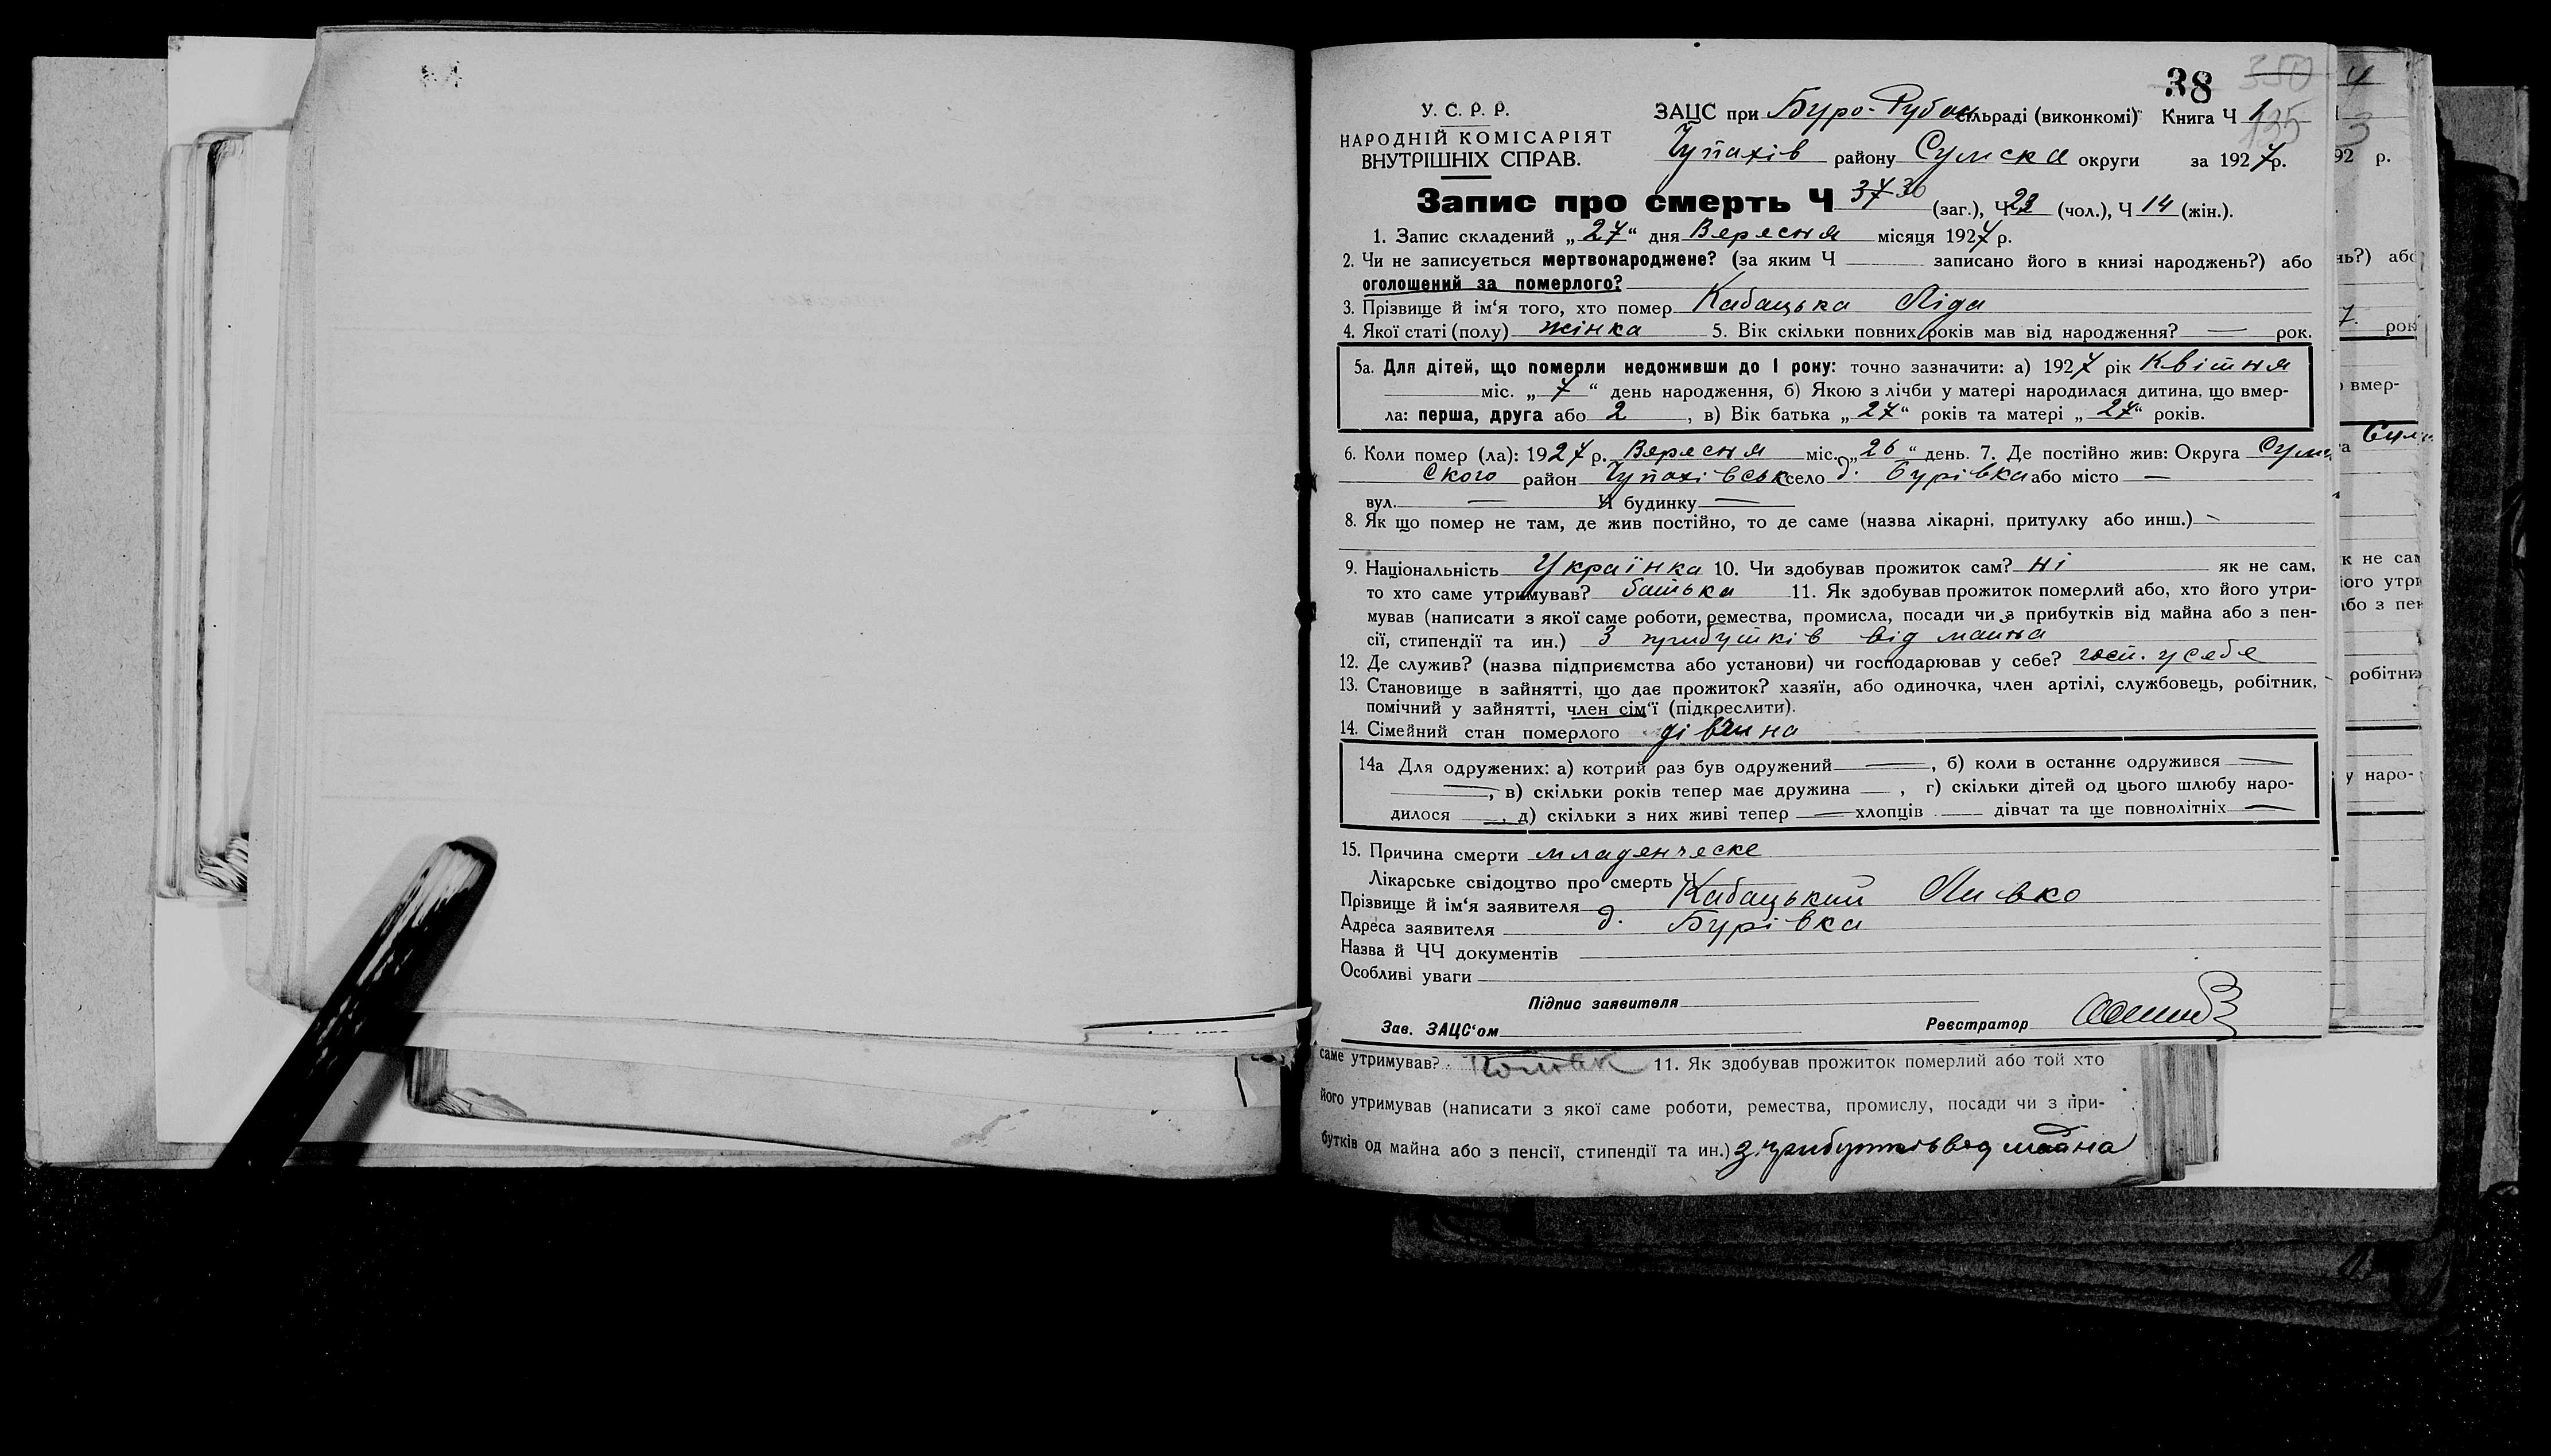 38 350
У. С. Р. Р.
НАРОДНІЙ КОМІСАРІЯТ
ВНУТРІШНІХ СПРАВ.
ЗАЦС при Буро-Рубан сільраді (виконкомі) Книга Ч 1
135
Чупахів району Сумска округи за 1927р.
Запис про смерть Ч 37 36 (заг.), Ч (чол.), Ч 14 (жін.).
1. Запис складений „27“ дня Вересня місяця 1927 р.
2. Чи не записується мертвонароджене? (за яким Ч записано його в книзі народжень?) або
оголошений за померлого?
3. Прізвище й ім‘я того, хто помер Кабацька Ліда
4. Якої статі (полу) жінка 5. Вік скільки повних років мав від народження? — рок.
5а. Для дітей, що померли недоживши до 1 року: точно зазначити: а) 1927 рік Квітня
міс. „7“ день народження, б) Якою з лічби у матері народилася дитина, що вмер-
ла: перша, друга або 2, в) Вік батька „27“ років та матері „27“ років.
6. Коли помер (ла): 1927 р. Вересня міс. „26“ день. 7. Де постійно жив: Округа Сум
ского район Чупахівськ село д. Бурівка або місто —
вул. — Ч будинку —
8. Як що помер не там, де жив постійно, то де саме (назва лікарні, притулку або инш.)
9. Національність Українка 10. Чи здобував прожиток сам? ні як не сам,
то хто саме утримував? батька 11. Як здобував прожиток померлий або, хто його утри-
мував (написати з якої саме роботи, ремества, промисла, посади чи з прибутків від майна або з пен-
сії, стипендії та ин.) З прибутків від майна
12. Де служив? (назва підприємства або установи) чи господарював у себе? госп. у себе
13. Становище в зайнятті, що дає прожиток? хазяїн, або одиночка, член артілі, службовець, робітник,
помічний у зайнятті, член сім‘ї (підкреслити).
14. Сімейний стан померлого дівчина
14а Для одружених: а) котрий раз був одружений —, б) коли в останнє одружився —
—, в) скільки років тепер має дружина —, г) скільки дітей од цього шлюбу наро-
дилося —, д) скільки з них живі тепер — хлопців — дівчат та ще повнолітніх —
15. Причина смерти младенческе
Лікарське свідоцтво про смерть Ч
Прізвище й ім‘я заявителя КабацькийЛивко
Адреса заявителя д. Бурівка
Назва й ЧЧ документів
Особливі уваги
Підпис заявителя
Зав. ЗАЦС‘ом Реєстратор
саме утримував? 11. Як здобував прожиток померлий або той хто
його утримував (написати з якої саме роботи, ремества, промислу, посади чи з при-
бутків од майна або з пенсії, стипендії та ин.) з прибутків від майна
3
92 р.
нь?) або
7. рок
вмер-
к не сам
його утри
або з пен
робітник
у наро-